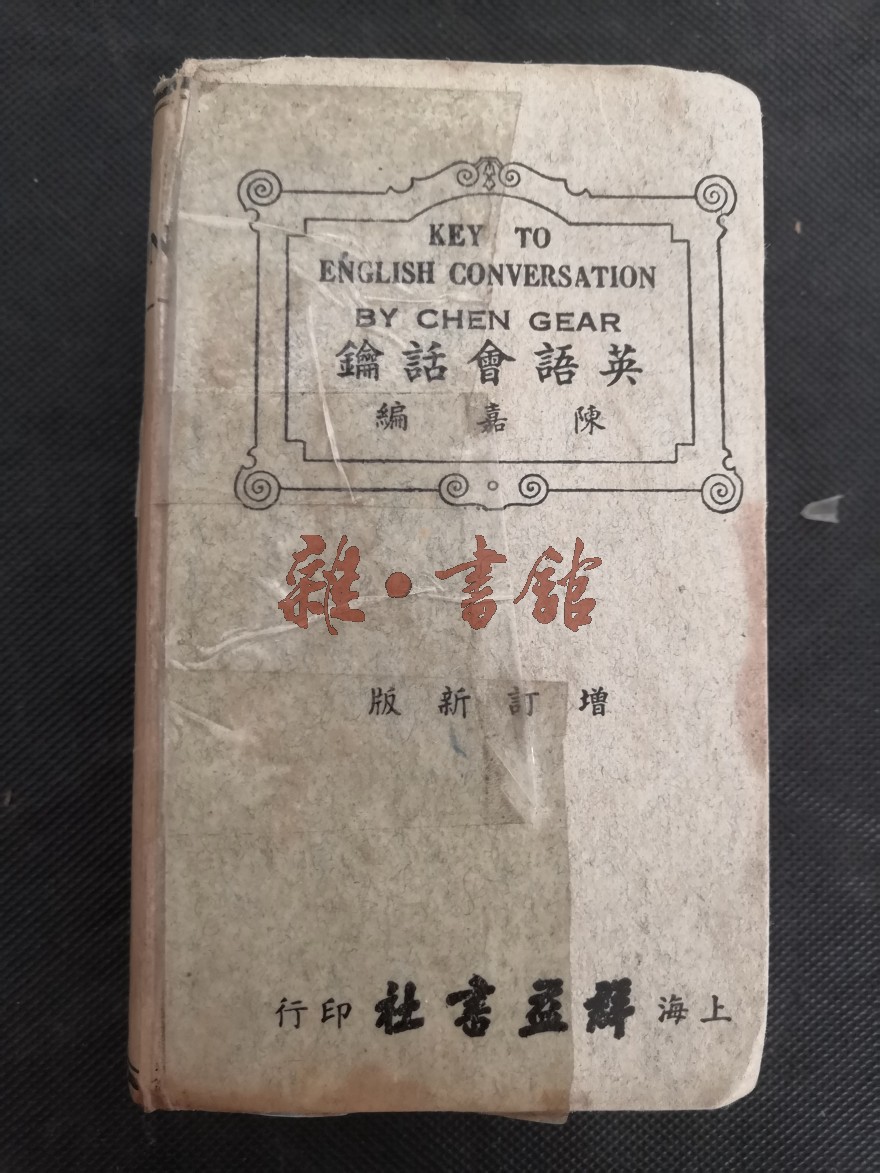 KEY TO
ENGLISH CONVERSATION
BY CHEN GEAR
英語會話鑰
陳嘉編
雜·書館
增訂新版
上海群益書社印行